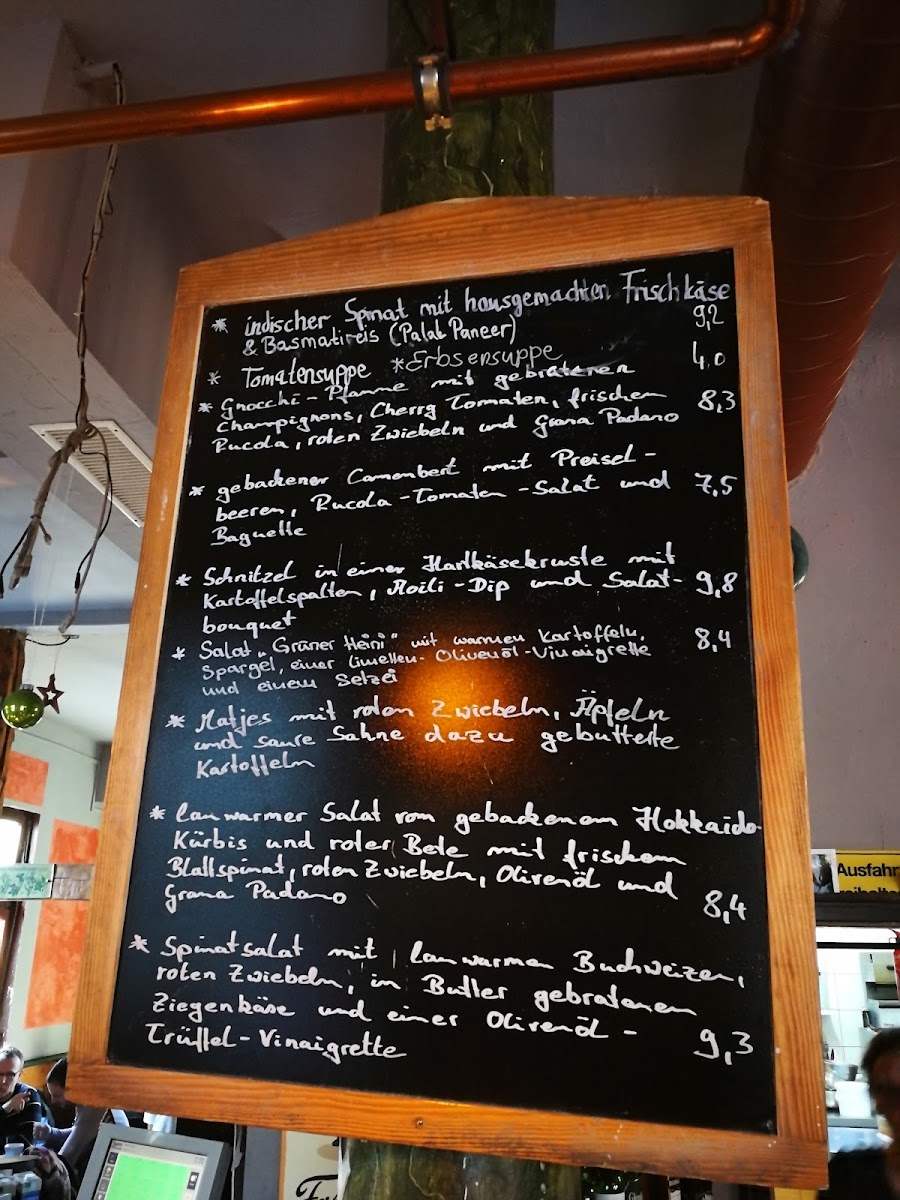 * indischer Spinat mit hausgemachten Frischkäse
& Basmatireis (Palak Paneer) 9,2
* Tomatensuppe *Erbsensuppe 4,0
* Gnocchi-Pfanne mit gebratenen
Champignons, Cherry Tomaten, frischem
Rucola, roten Zwiebeln und Grana Padano 8,3
* gebackener Camembert mit Preisel-
beeren, Rucola-Tomaten-Salat und 7,5
Baguette
* Schnitzel in einer Hartkäsekruste mit
Kartoffelspalten, Aoili-Dip und Salat- 9,8
bouquet
* Salat „Grüner Heini" mit warmen Kartoffeln, 8,4
Spargel, einer Limetten-Olivenöl-Vinaigrette
und einem Setzei
* Matjes mit roten Zwiebeln, Äpfeln
und saure Sahne dazu gebutterte
Kartoffeln
* lauwarmer Salat vom gebackenem Hokkaido-
Kürbis und roter Bete mit frischem
Blattspinat, roten Zwiebeln, Olivenöl und
Grana Padano 8,4
* Spinatsalat mit lauwarmen Buchweizen,
roten Zwiebeln, in Butter gebratenen
Ziegenkäse und einer Olivenöl-
Trüffel-Vinaigrette 9,3
Ausfahr